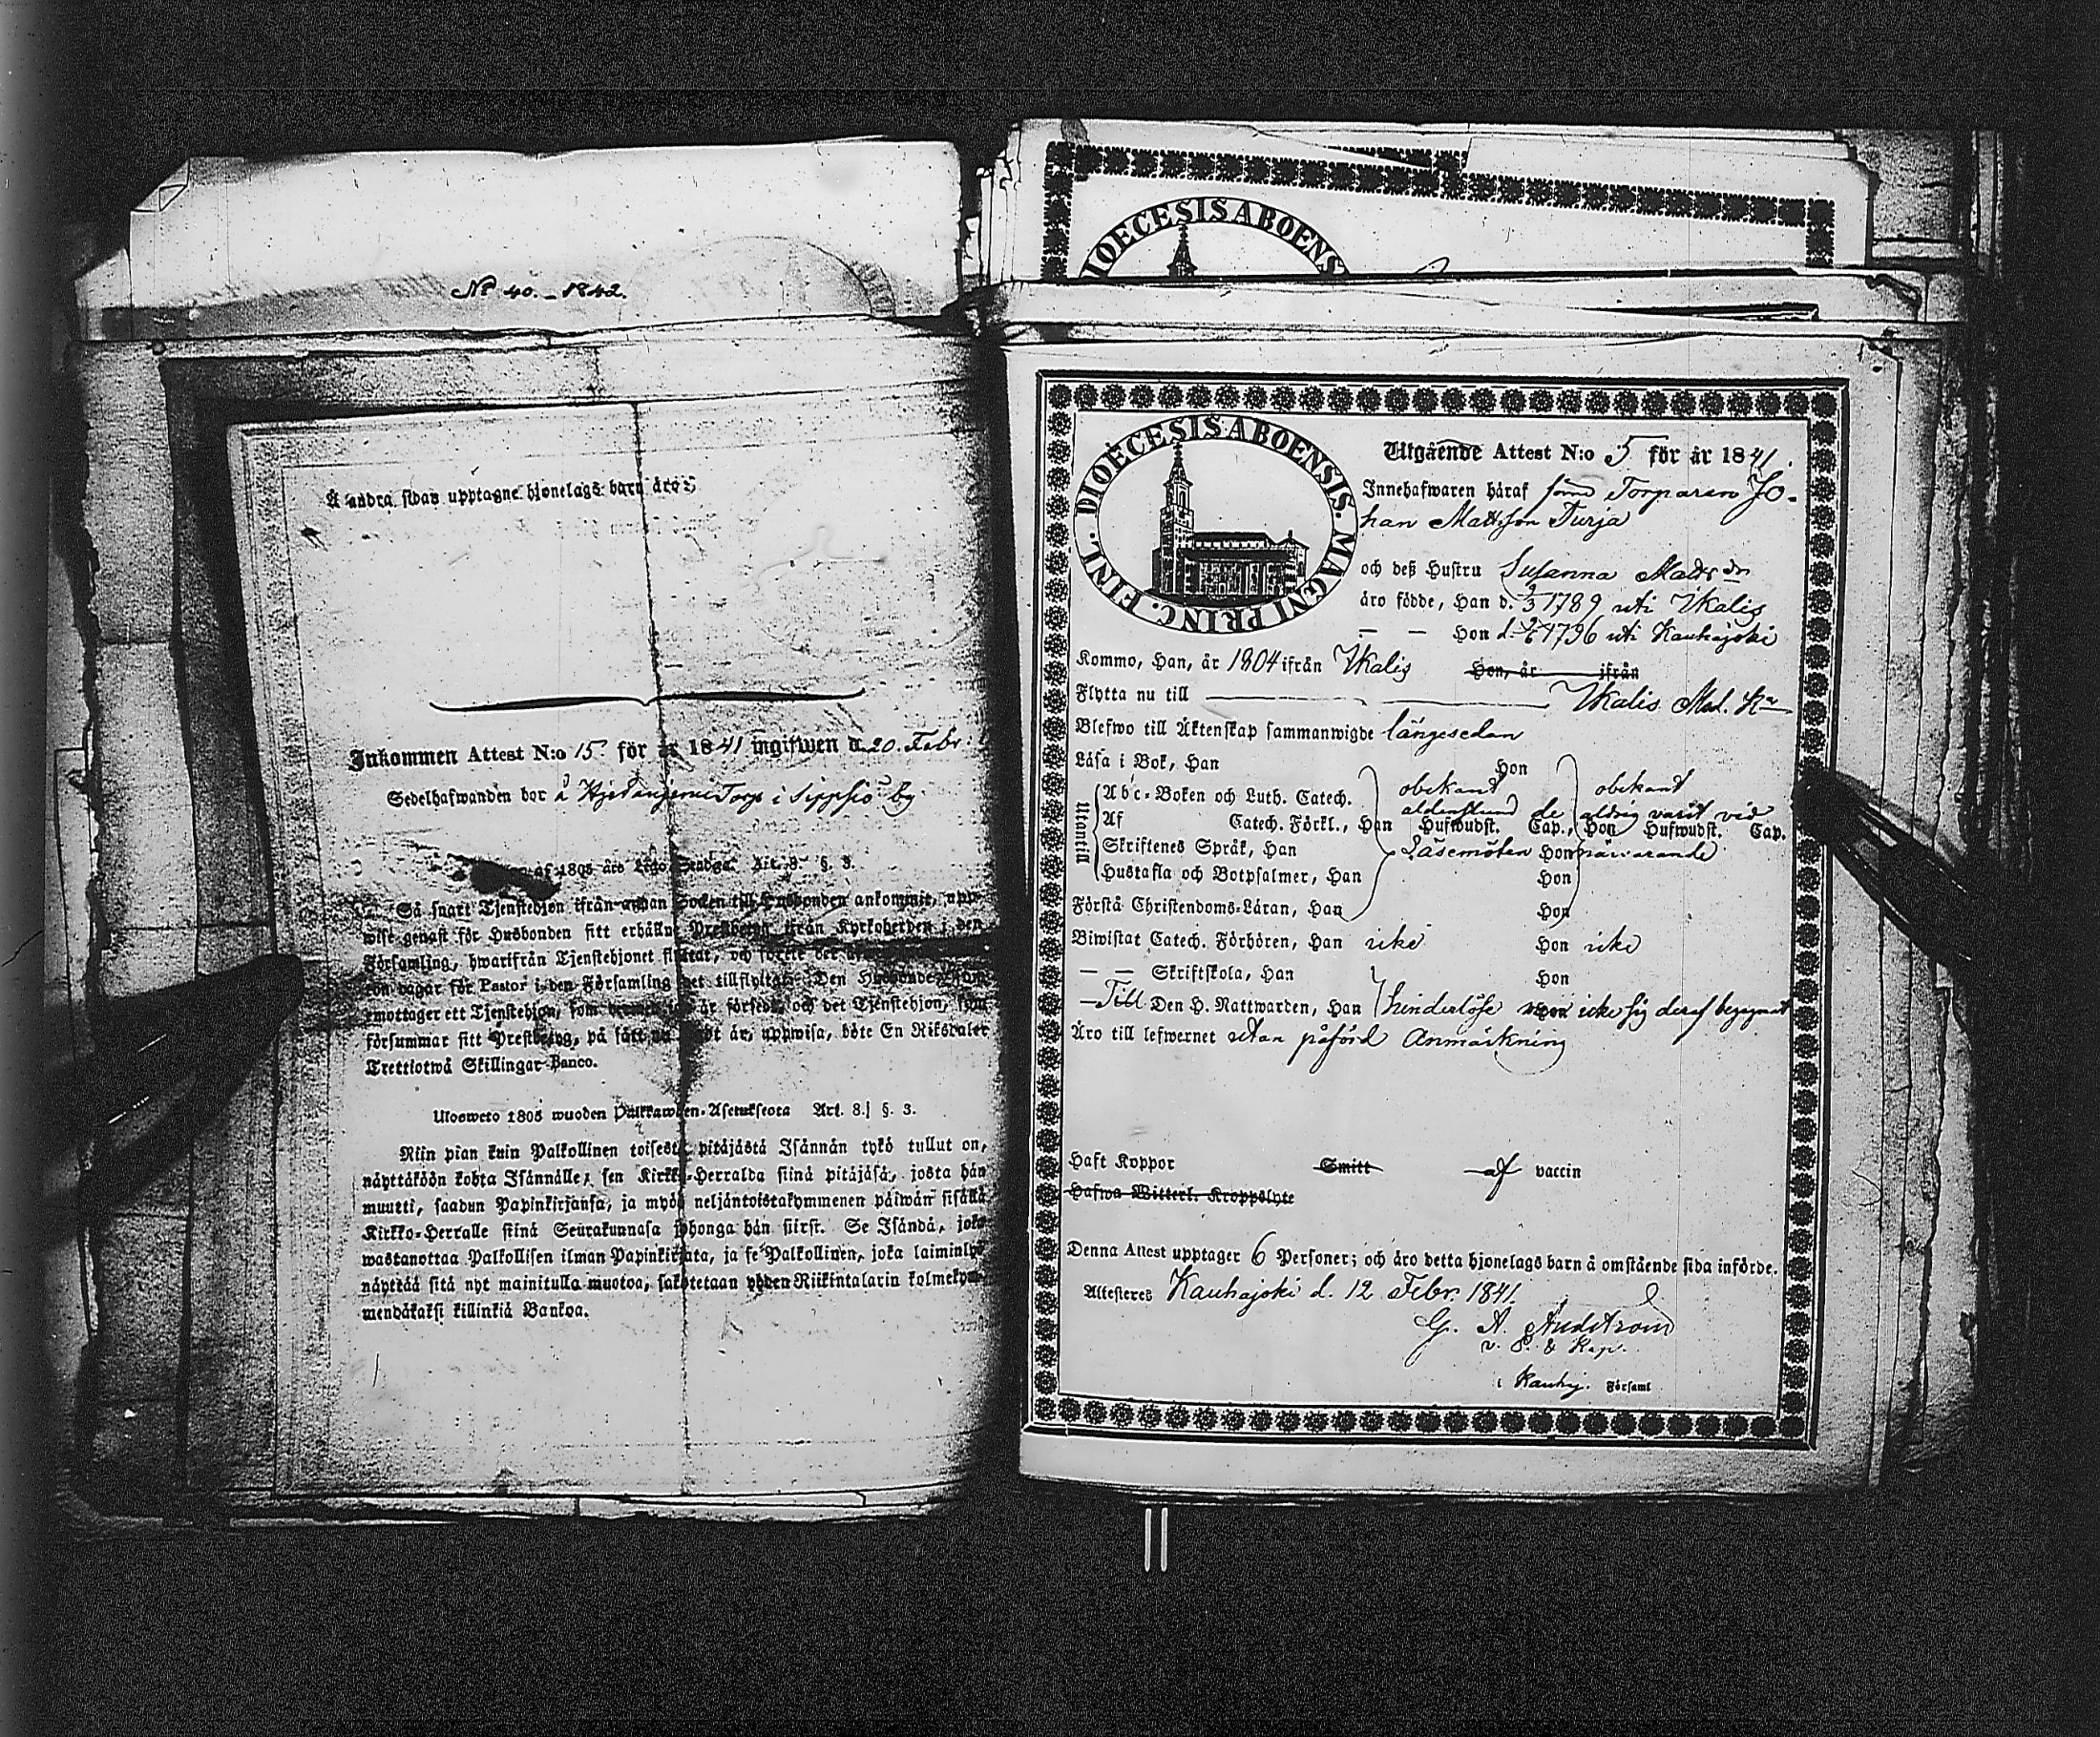 No 40. – 1842.
Å andra sidan upptagne hjonelags barn äro:
Inkommen Attest N:o 15 för år 1841 ingifwen d. 20. Febr.
Sedelhafwanden bor å Torp i Sippho by
af 1805 års Lego-Stadga. Art. 8. §. 3.
Så snart Tjenstehjon ifrån annan Socken till Husbonden ankommit, upp-
wise genast för Husbonden sitt erhållne Prestbetyg ifrån Kyrkoherden i den
Församling, hwarifrån Tjenstehjonet flyttat, och
ton dagar för Pastor i den Församling det tillflyttat. Den Husbonde
emottager ett Tjenstehjon, som är försedt, och det Tjenstehjon, som
försummar sitt Prestbetyg, på sätt är, uppwisa, böte En Riksdaler
Trettiotwå Skillingar Banco.
Ulosweto 1805 wuoden Palkawäen-Asetuksesta Art. 8. §. 3.
Niin pian kuin Palkollinen toisesta pitäjästä Isännän tykö tullut on,
näyttäköön kohta Isännälle, sen Kirkko-Herralda siinä pitäjäsä, josta hän
muutti, saadun Papinkirjansa, ja myös neljäntoistakymmenen päiwän sisällä
Kirkko-Herralle siinä Seurakunnasa johonga hän siirst. Se Isändä, joka
wastanottaa Palkollisen ilman Papinkirjata, ja se Palkollinen, joka laiminlyö
näyttää sitä nyt mainitulla muotoa, sakotetaan yhden Riikintalarin kolmekym-
mendäkaksi killinkiä Bankoa.
DIOECESIS ABOENS
DIOECESIS ABOENSIS. MAGNI PRINC. FINL.
Utgående Attest N:o 5 för år 1841.
Innehafwaren häraf förre Torparen Jo-
han Mattsson Turja
och deß Hustru Susanna Matts dr
äro födde, Han d. 1789 uti Ikalis
— — Hon d. 1796 uti Kauhajoki
Kommo, Han, år 1804 ifrån Ikalis Hon, år ifrån
Flytta nu till Ikalis Mod. Ka
Blefwo till Äktenskap sammanwigde längesedan
Läsa i Bok, Han Hon
Utantill
Abc-Boken och Luth. Catech. obekant obekant
Af Catech. Förkl., Han Hufwudst. Cap., Hon Hufwudst. Cap.
de aldrig varit vid
Skriftenes Språk, Han Läsemöten Hon närvarande
Hustafla och Botpsalmer, Han Hon
Förstå Christendoms-Läran, Han Hon
Biwistat Catech. Förhören, Han icke Hon icke
— — Skriftskola, Han Hon
—Till Den H. Nattwarden, Han hinderlöse men icke sig deraf begagnat
Äro till lefwernet utan påförd Anmärkning
Haft Koppor Smitt af vaccin
Hafwa Witterl. Kroppslyte
Denna Attest upptager 6 Personer; och äro detta hjonelags barn å omstående sida införde.
Attesteres Kauhajoki d. 12 Febr. 1841.
G. A. Andstrom
v. P. & Kap.
i Kauhj. Församl